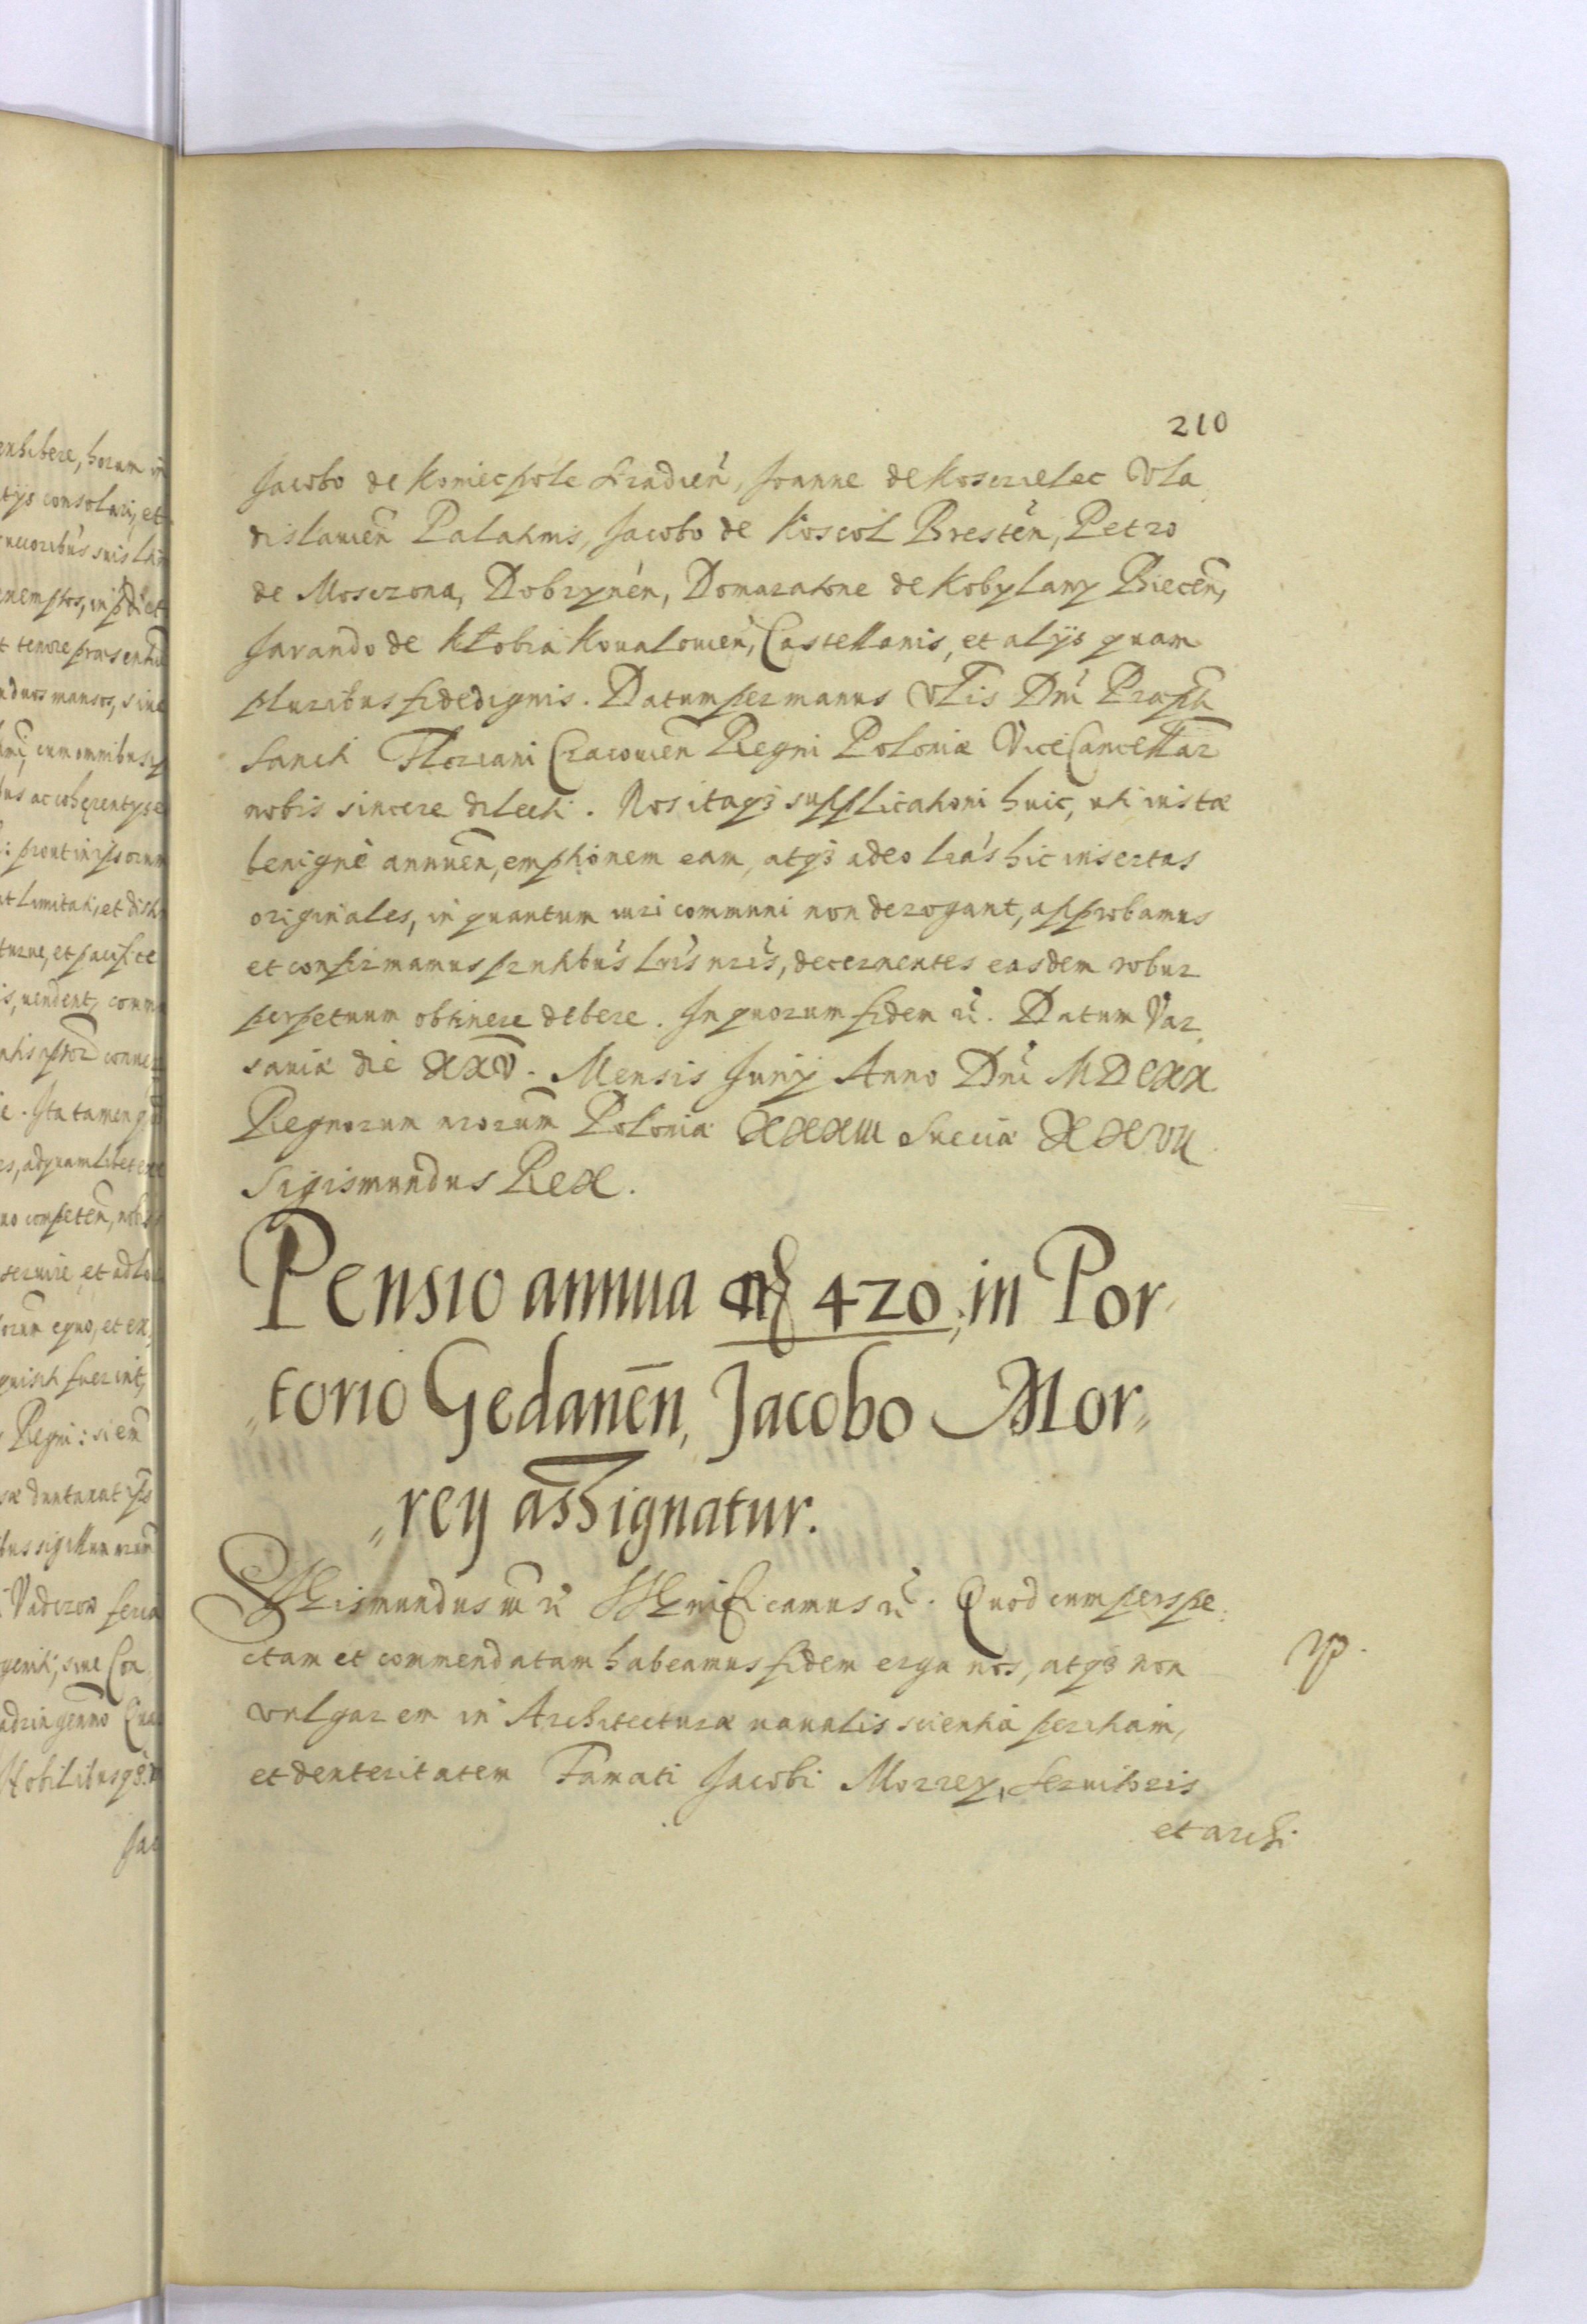 210
Jacobo de Koniecpole Siradień, Joanne de Koscielec Vla
dislauień Palatinis, Jacobo de Koscol Brestén, Petro
de Mosczona, Dobrzynén, Domaratone de Kobylany Biecen̄,
Jarando de Kłobia Koualouień, Castellanis, et alijs quam
pluribus fidedignis. Datum per manus Vlis Dni Præpti
Sancti Floriani Cracouien̄ Regni Poloniæ ViceCancellar̄
nobis sincere dilecti. Nos itaqȝ supplicationi huic, uti iustæ
benignè annuen̄, emptionem eam, atqȝ adeo lrás hic insertas
originales, in quantum iuri communi non derogant, approbamus
et confirmamus pntibus lris nris, decernentes easdem robur
perpetuum obtinere debere. In quorum fidem &c. Datum Var
sauiæ die XXV. Mensis Junij Anno Dni MDCXX
Regnorum nrorum Poloniæ XXXIII Sueciæ XXVII
Sigismundus Rex.
Pensio annua 420 in Por
torio Gedanēn, Jacobo Mor
rey assignatur.
Sigismundus III &c. Significamus &c. Quod cum perspe
ctam et commendatam habeamus fidem erga nos, atqȝ non
vulgarem in Architecturæ naualis scientia peritiam,
et dexteritatem Famati Jacobi Morrey, Seruitoris
et archi
enhibere, horum in
tijs consolari, et
t tenore præsentiū
duos mansos, sine
cum omnibus
prout in ipsorum
limitati, et disti
et pacifice
uendent, comm
Ita tamen
ad quamlibet
competen̄, nobis
seruire, et ad
equo, et ex
fuerint,
Regni: si em̄
duntaxat
bus sigillum nrum
feria
siue Con
Nobilibusqȝ
Jac